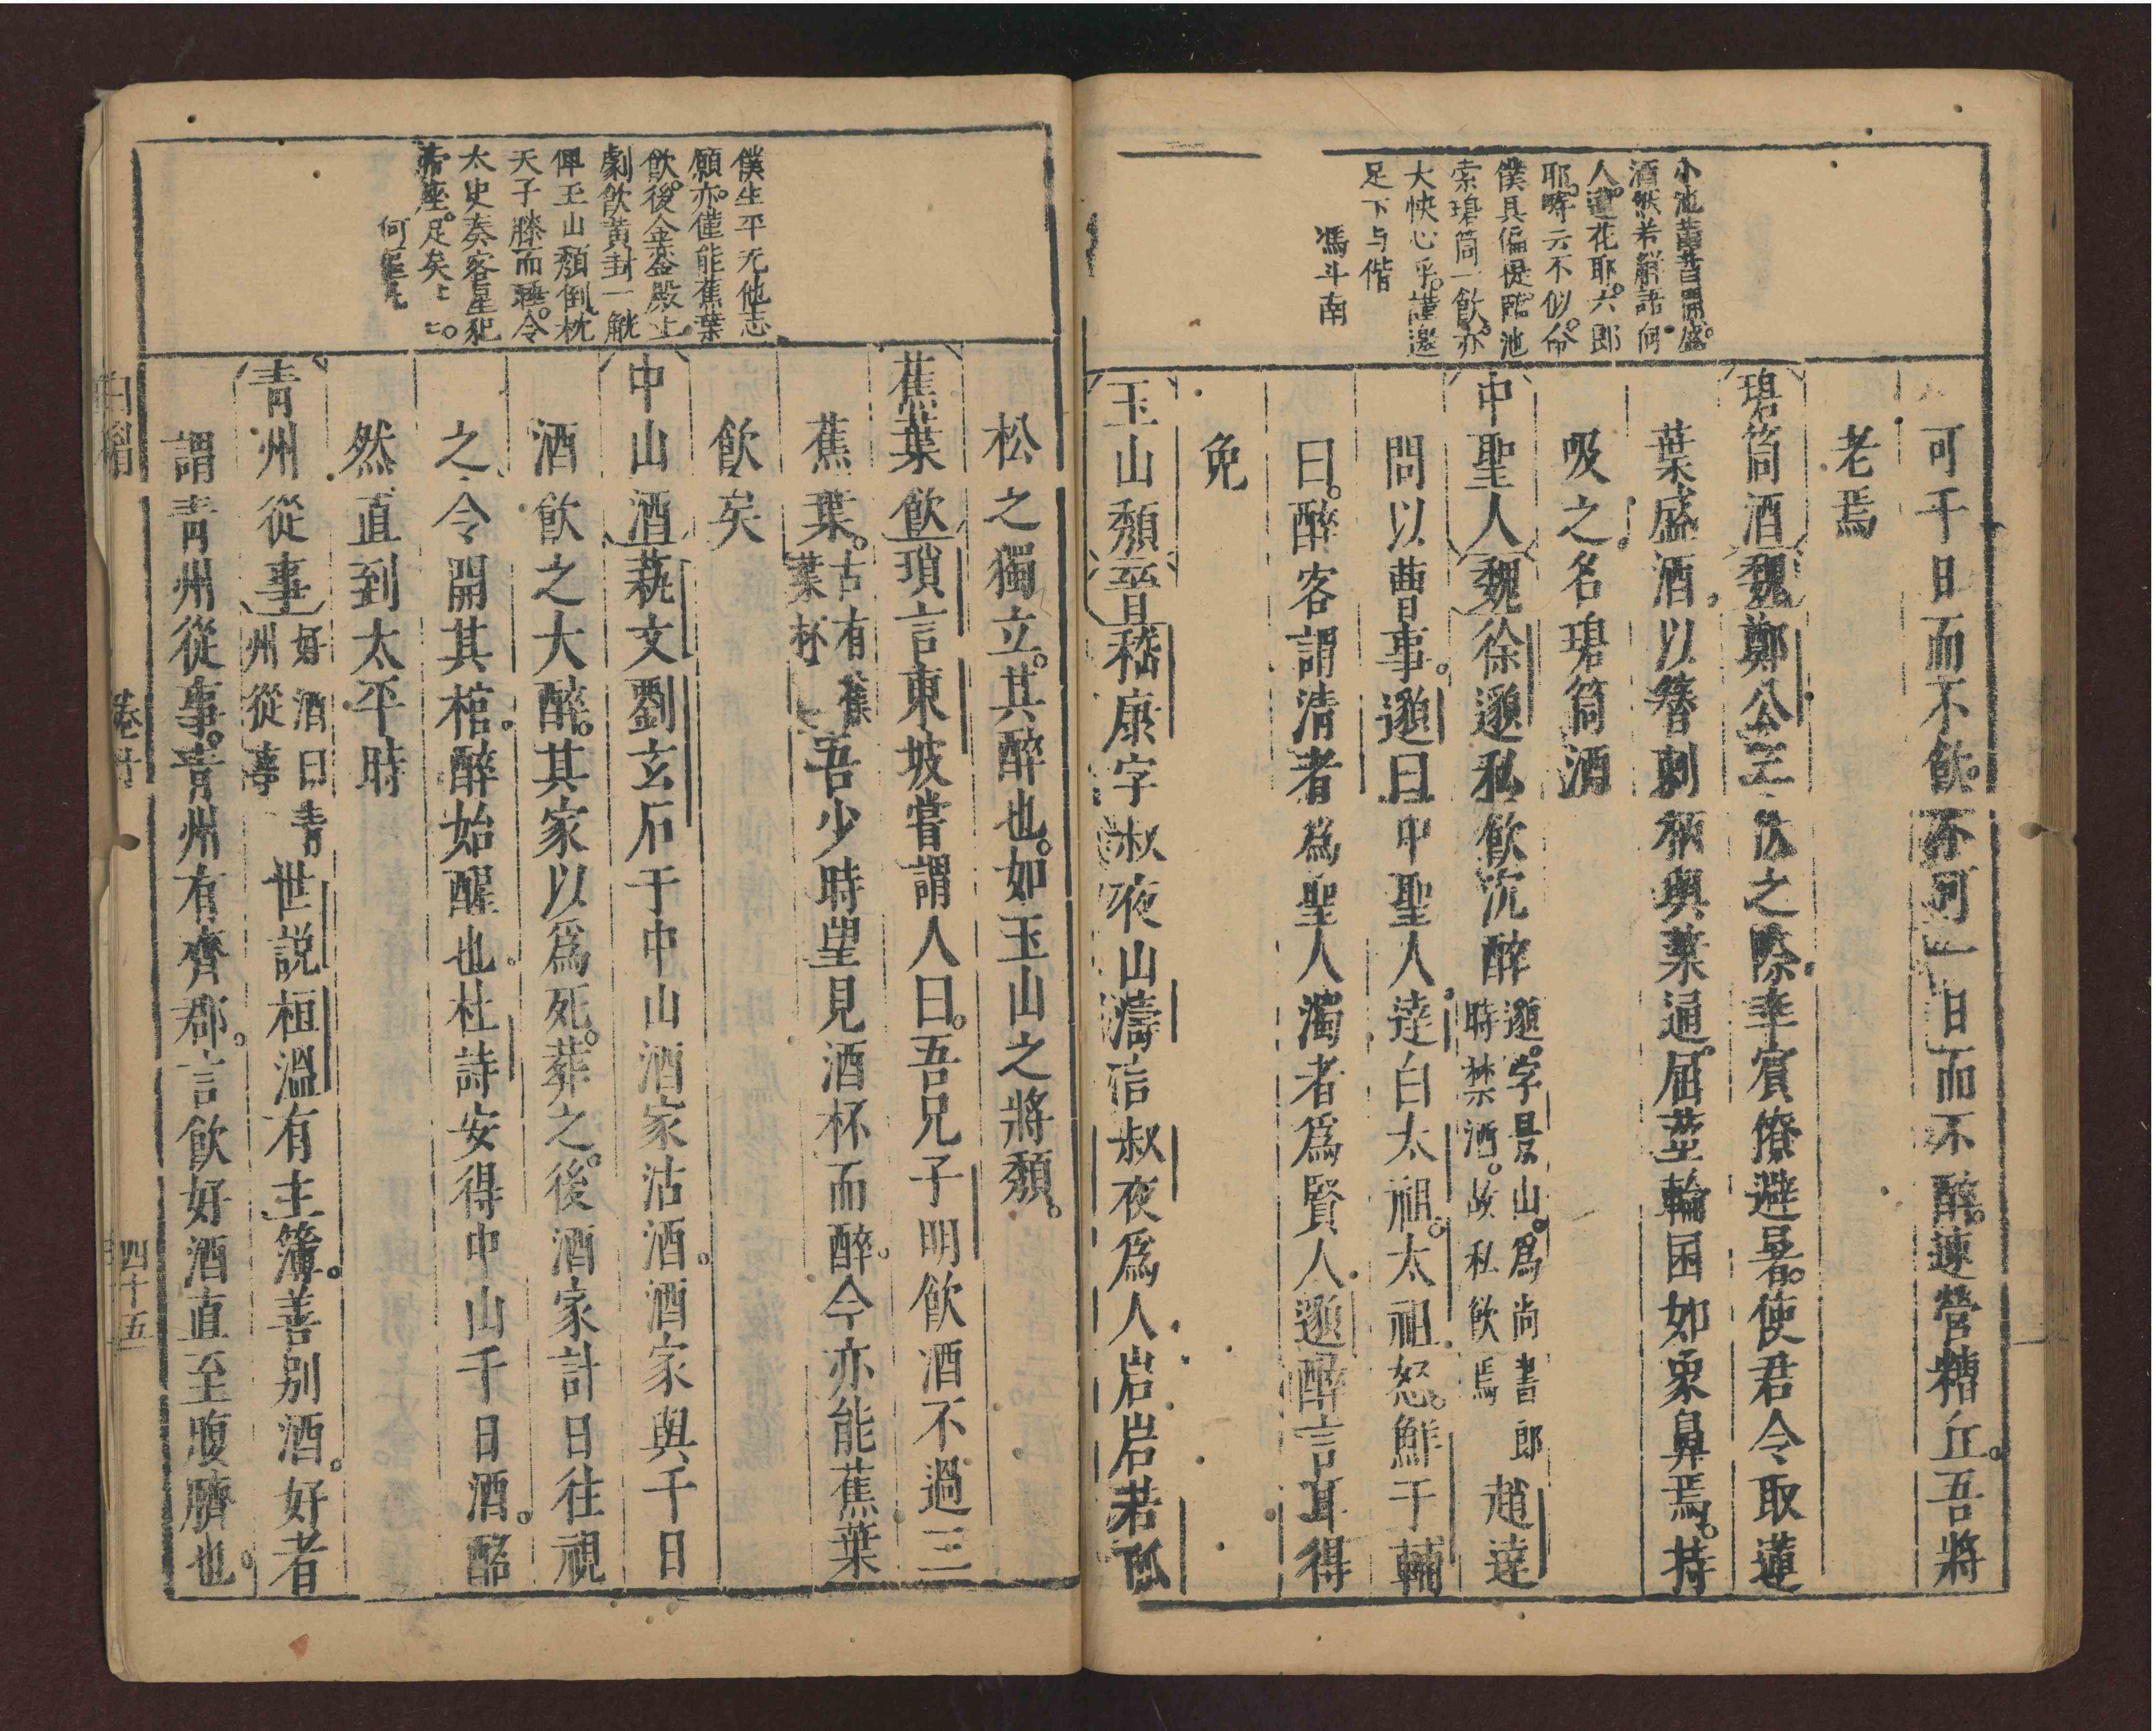 小池菡萏開盛。
酒然若解語何
人。蓮花耶。六郎
耶。時云不似。命
僕具偏提臨池
索碧筒一飲。亦
大快心乎。謹邀
足下与偕
馮斗南
可千日而不飲。不可一日而不醉。速營糟丘。吾將
老焉
碧筒酒魏鄭公三伏之際。率賓僚避暑。使君令取蓮
葉盛酒。以簪刺柄與葉通。屈莖輪囷如象鼻焉。持
吸之。名碧筒酒
中聖人魏徐邈私飲沉醉邈。字景山。為尚書郎
時禁酒。故私飲焉趙達
問以曹事。邈曰中聖人。達白太祖。太祖怒。鮮于輔
曰。醉客謂清者為聖人濁者為賢人。邈醉言耳得
免
玉山頹晉嵇康字叔夜山濤信叔夜為人岩岩若孤
僕生平无他志
願。亦僅能蕉葉
飲。後金銮殿上
劇飲黄封一觥
俾玉山頹倒枕
天子膝而睡。令
太史奏客星犯
帝座。足矣〻〻。
何
松之獨立。其醉也。如玉山之將頹。
蕉葉飲瑣言東坡嘗謂人曰。吾兄子明飲酒不過三
蕉葉。古有蕉
葉杯吾少時望見酒杯而醉。今亦能蕉葉
飲矣
中山酒藝文劉玄石于中山酒家沽酒。酒家與千日
酒飲之大醉。其家以爲死。葬之。後酒家計日往視
之令開其棺。醉始醒也。杜詩安得中山千日酒。酩
然直到太平時
青州從事好酒曰青
州從事世說桓溫有主簿。善别酒。好者
謂青州從事。青州有齊郡。言飲好酒直至腹臍也。
卷廿
四十五